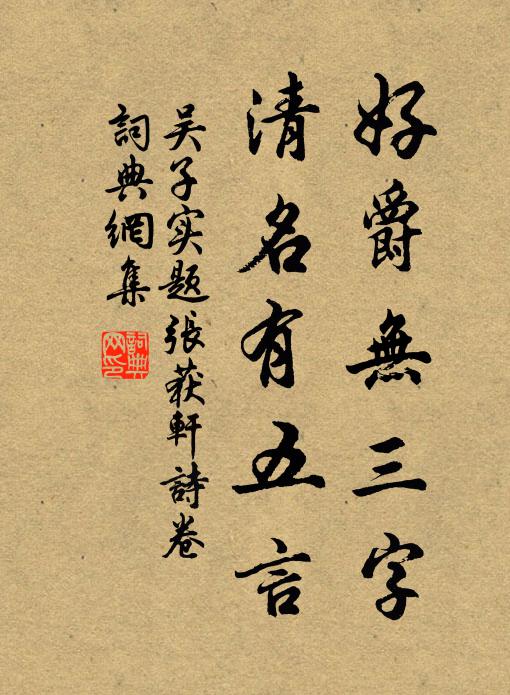 好爵無三字
清名有五言
吴子实题張荻軒詩卷
詞典網集
詞典網印